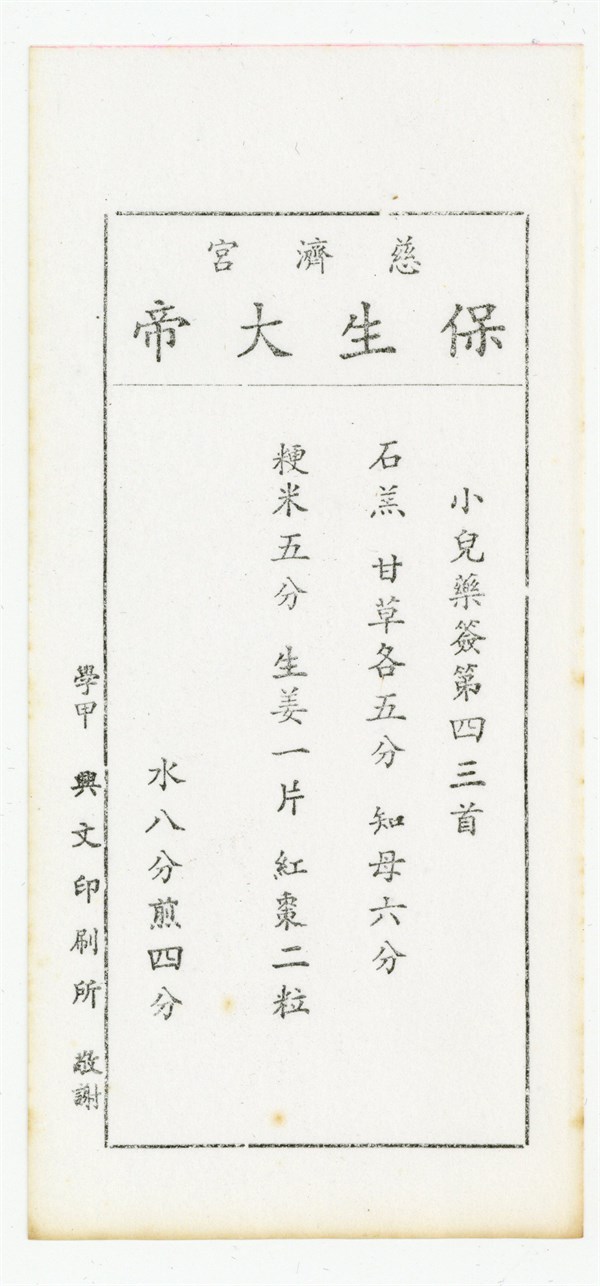 慈濟宮
保生大帝
小兒藥簽第四三首
石羔 甘草各五分 知母六分
粳米五分 生姜一片 紅棗二粒
水八分煎四分
學甲 興文印刷所 敬謝